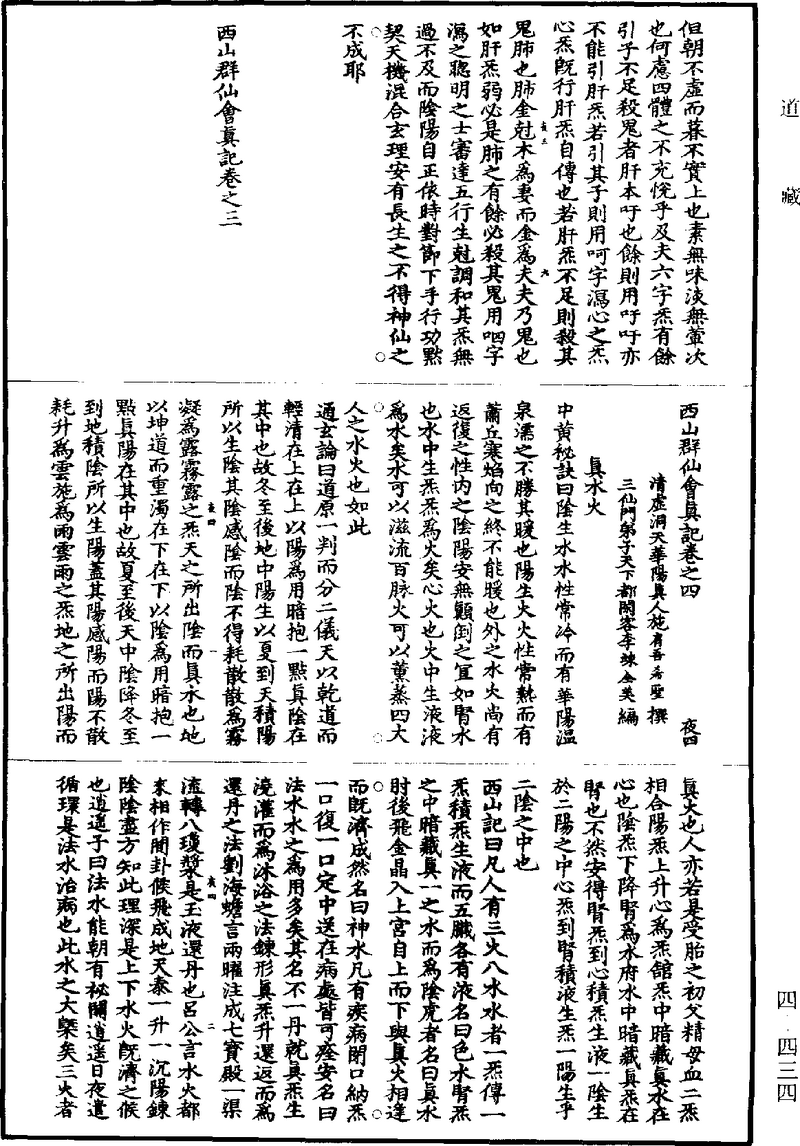 道藏
但朝不虛而暮不實上也素無味淡無葷次
也何慮四體之不充悅乎及夫六字炁有餘
引子不足殺鬼者肝本吁也餘則用吁吁亦
不能引肝炁若引其子則用呵字瀉心之炁
心炁既行肝炁自傳也若肝炁不足則殺其
鬼肺也肺金尅木為妻而金為夫夫乃鬼也
如肝炁弱必是肺之有餘必殺其鬼用呬字
瀉之聰明之士審達五行生尅調和其炁無
過不及而陰陽自正依時對節下手行功默
契天機混合玄理安有長生之不得神仙之
不成耶
西山群仙會真記卷之三
西山群仙會真記卷之四 夜四
清虛洞天華陽真人施肩吾希聖撰
三仙門弟子天下都閑客李竦全美編
真水火
中黃秘訣曰陰生水水性常冷而有華陽溫
泉濡之不勝其暖也陽生火火性常熱而有
蕭丘寒焰向之終不能暖也外之水火尚有
返復之性內之陰陽安無顛倒之宜如腎水
也水中生炁炁為火矣心火也火中生液液
為水矣水可以滋流百脉火可以薰蒸四大
人之水火也如此
通玄論曰道原一判而分二儀天以乾道而
輕清在上在上以陽為用暗抱一點真陰在
其中也故冬至後地中陽生以夏到天積陽
所以生陰其陰感陰而陰不得耗散散為霧
凝為露霧露之炁天之所出陰而真水也地
以坤道而重濁在下在下以陰為用暗抱一
點真陽在其中也故夏至後天中陰降冬至
到地積陰所以生陽蓋其陽感陽而陽不散
耗升為雲施為雨雲雨之炁地之所出陽而
真火也人亦若是受胎之初父精母血二炁
相合陽炁上升心為炁館炁中暗藏真水在
心也陰炁下降腎為水府水中暗藏真炁在
腎也不然安得腎炁到心積炁生液一陰生
於二陽之中心炁到腎積液生炁一陽生乎
二陰之中也
西山記曰凡人有三火八水水者一炁傳一
炁積炁生液而五臟各有液名曰色水腎炁
之中暗藏真一之水而為陰虎者名曰真水
肘後飛金晶入上宮自上而下與真火相逢
而既濟成然名曰神水凡有疾病閉口納炁
一口復一口定中送在病處皆可痊安名曰
法水水之為用多矣其名不一丹就真炁生
澆灌而為沐浴之法鍊形真炁升還返而為
還丹之法劉海蟾言兩曜注成七寶殿一渠
流轉八瓊漿是玉液還丹也呂公言水火都
來相作間卦候飛成地天泰一升一沉陽鍊
陰陰盡方知此理深是上下水火既濟之候
也逍遙子曰法水能朝有祕關逍遙日夜遣
循環是法水治病也此水之大槩矣三火者
四·四三四